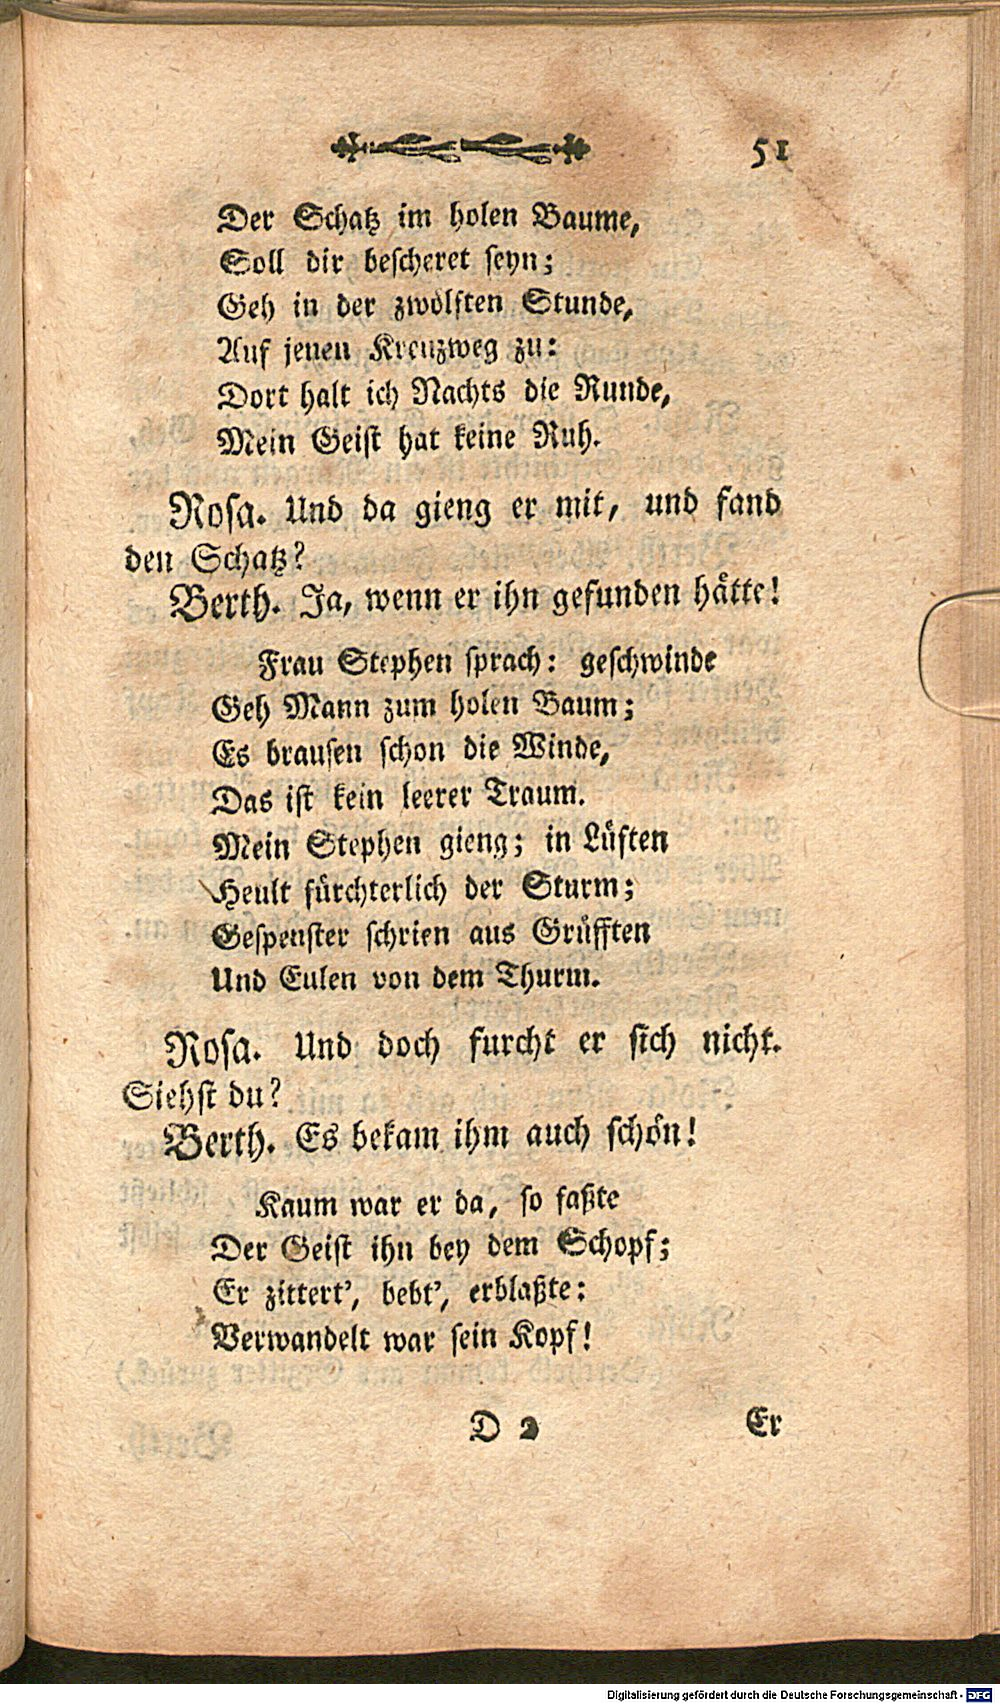 51
Der Schatz im holen Baume,
Soll dir bescheret seyn;
Geh in der zwölften Stunde,
Auf jenen Kreuzweg zu:
Dort halt ich Nachts die Runde,
Mein Geist hat keine Ruh.
Rosa. Und da gieng er mit, und fand
den Schatz?
Berth. Ja, wenn er ihn gefunden hätte!
Frau Stephen sprach: geschwinde
Geh Mann zum holen Baum;
Es brausen schon die Winde,
Das ist kein leerer Traum.
Mein Stephen gieng; in Lüften
Heult fürchterlich der Sturm;
Gespenster schrien aus Grüfften
Und Eulen von dem Thurm.
Rosa. Und doch furcht er sich nicht.
Siehst du?
Berth. Es bekam ihm auch schön!
Kaum war er da, so faßte
Der Geist ihn bey dem Schopf;
Er zittert’, bebt’, erblaßte:
Verwandelt war sein Kopf!
D 2 Er
Digitalisierung gefördert durch die Deutsche Forschungsgemeinschaft - DFG